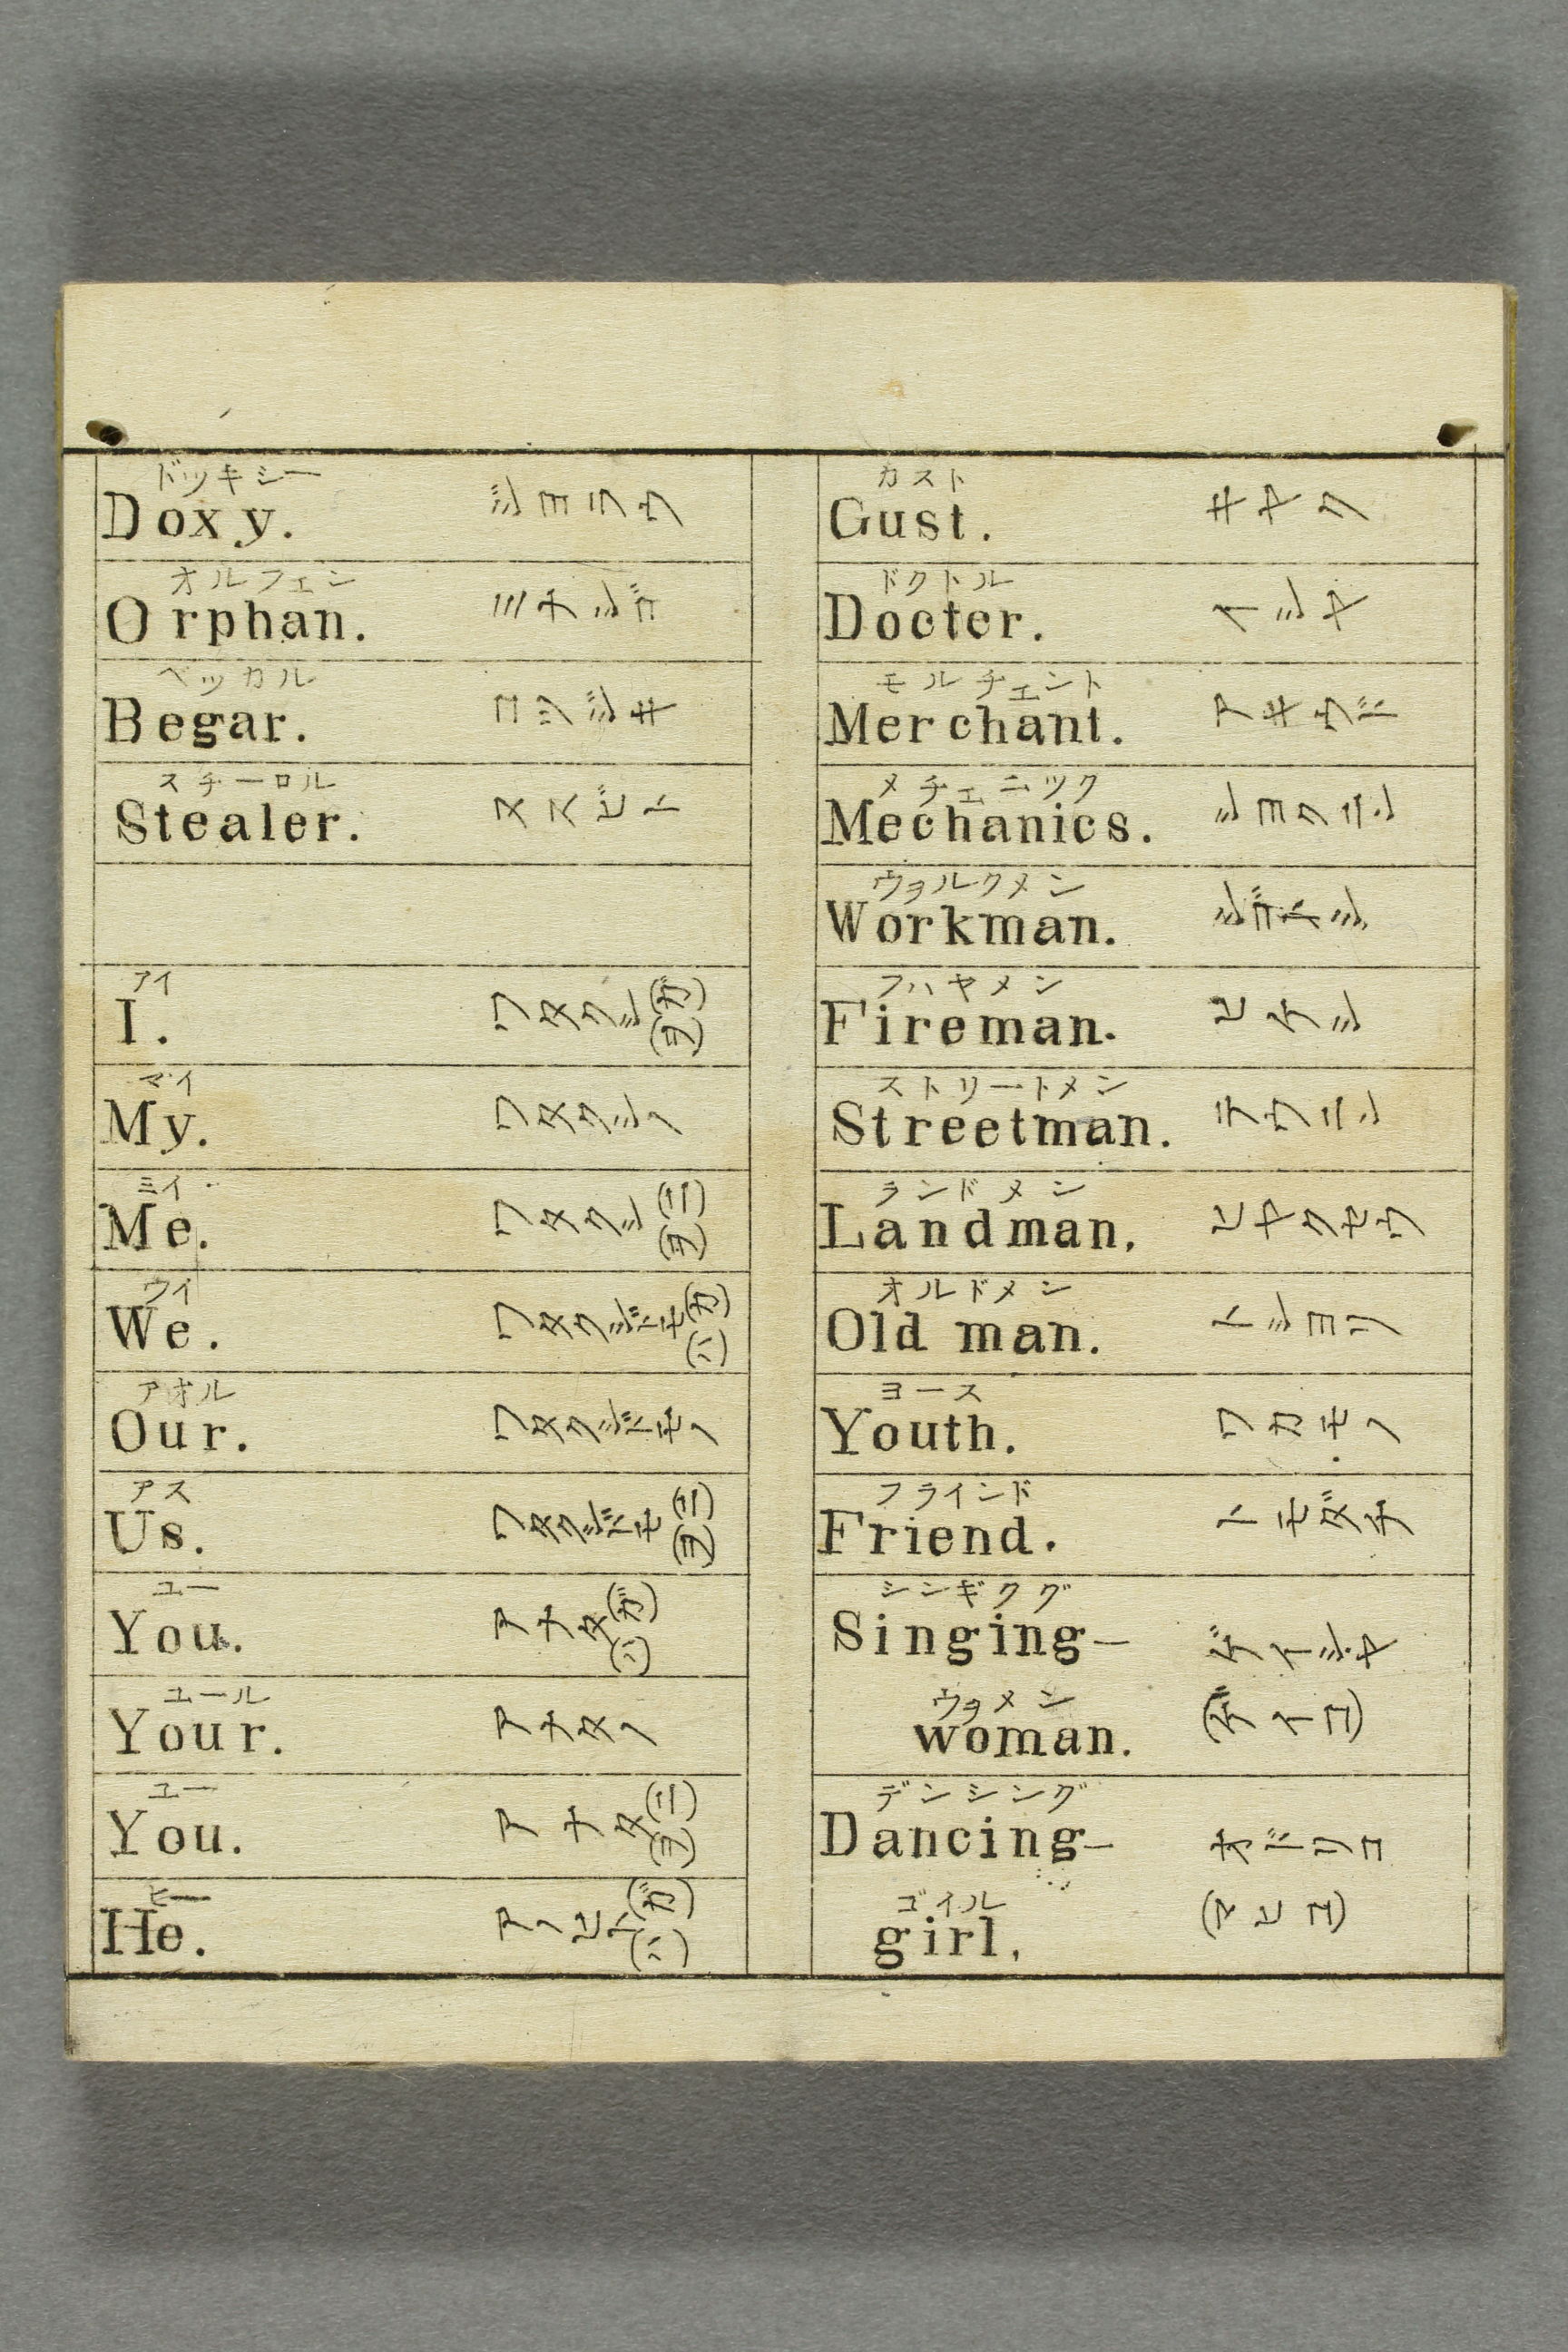 ドツキシー
Doxy.
オルフェン
Orphan. ミナシゴ
ベッカル
Begar. コツジキ
スチーロル
Stealer. ヌスビト
アイ
I. ワタクシ(ガ)(ヲ)
マイ
My. ワタクシノ
ミイ
Me. ワタクシ(ニ)(ヲ)
ウイ
We. ワタクシドモ(ガ)(ハ)
アオル
Our. ワタクシドモノ
アス
Us. ワタクシドモ(ニ)(ヲ)
ユー
You. アナタ(ガ)(ハ)
ユール
Your. アナタノ
ユー
You. アナタ(ニ)(ヲ)
ヒー
He. アノヒト(ガ)(ハ)
カスト
Gust. キヤク
ドクトル
Docter. イシヤ
モルチェント
Merchant. アキウド
メチェニツク
Mechanics. シヨクニン
ウヨルクメン
Workman. シゴトシ
フハヤメン
Fireman. ヒケシ
ストリートメン
Streetman.
ランドメン
Landman. ヒヤクセウ
オルドメン
Old man. トシヨリ
ヨース
Youth. ワカモノ
フラインド
Friend. トモダチ
シンギクグ
Singing- ゲイシヤ
ウヨメン
woman. (ゲイコ)
デンシング
Dancing- オドリコ
ゴイル
girl. (マヒコ)